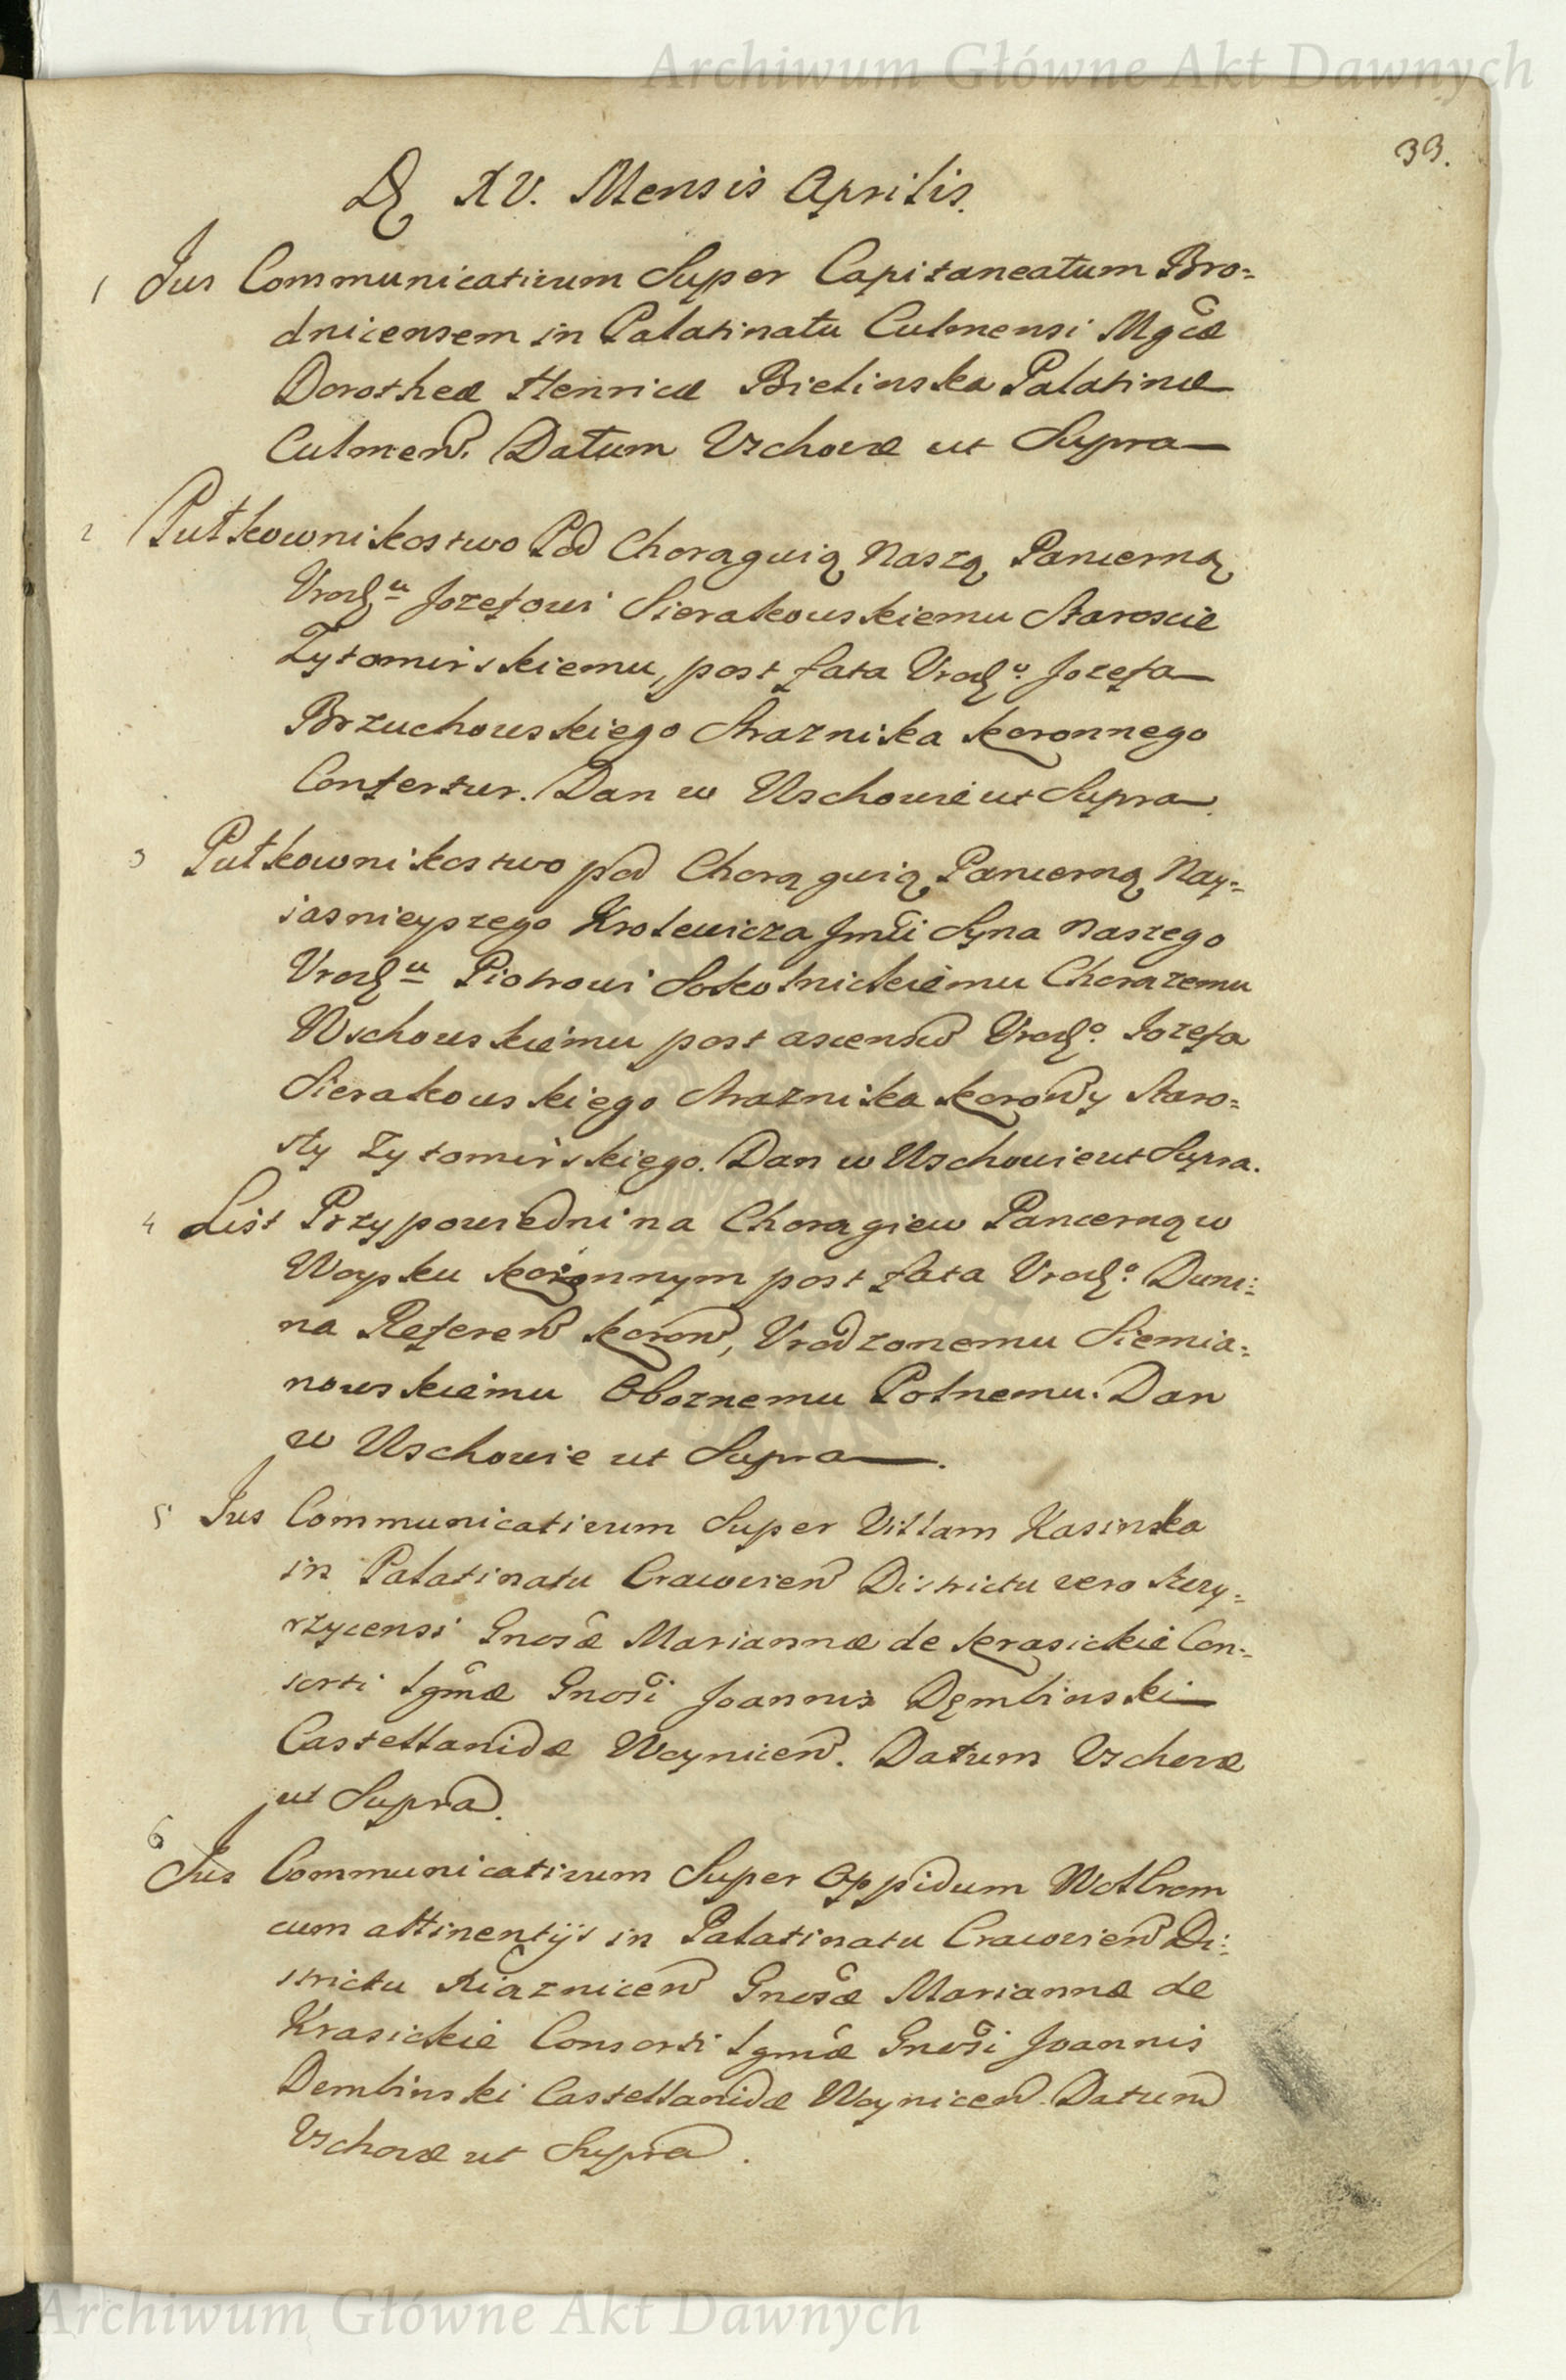 Archiwum Główne Akt Dawnych
39.
D. XV. Mensis Aprilis.
1 Jus Communicativum Super Capitaneatum Bro=
dnicensem in Palatinatu Culmensi Mgcæ
Dorotheæ Henricæ Bielinska Palatinæ
Culmen. Datum Vschovæ ut Supra
2 Pułkownikostwo Pod Chorągwią Naszą Pancerną
Urodzu Jozefowi Sierakowskiemu Staroscie
Zytomirskiemu, post fata Urodzo Jozefa
Brzuchowskiego Straznika Koronnego
Confertur. Dan w Wschowie ut Supra.
3 Pułkownikostwo pod Chorągwią Pancerną Nay=
iasnieyszego Krolewicza Jmci Syna Naszego
Urodzu Piotrowi Sokolnickiemu Chorazemu
Wschowskiemu post ascensum Urodzo Jozefa
Sierakowskiego Straznika Koronny Staro=
sty Zytomirskiego. Dan w Wschowie ut Supra.
4 List Przypowiedni na Choragiew Pancerną w
Woysku Koronnym post fata Urodzo Duni=
na Referen Koron, Urodzonemu Siemia=
nowskiemu Oboznemu Polnemu. Dan
w Wschowie ut Supra.
5 Jus Communicativum Super Villam Kasinka
in Palatinatu Cracovien Districtu vero Szczy=
rzycensi Gnosæ Mariannæ de Krasickie Con=
sorti Lgmæ Gnosi Joannis Dęmbinski
Castellanidæ Woynicen. Datum Vschovæ
ut Supra.
6 Jus Communicativum Super Oppidum Wolbrom
cum attinentijs in Palatinatu Cracovien Di=
strictu Xiąznicen Gnosæ Mariannæ de
Krasickie Consorti Lgmæ Gnosi Joannis
Dembinski Castellanidæ Woynicen. Datum
Vschovæ ut Supra.
Archiwum Główne Akt Dawnych